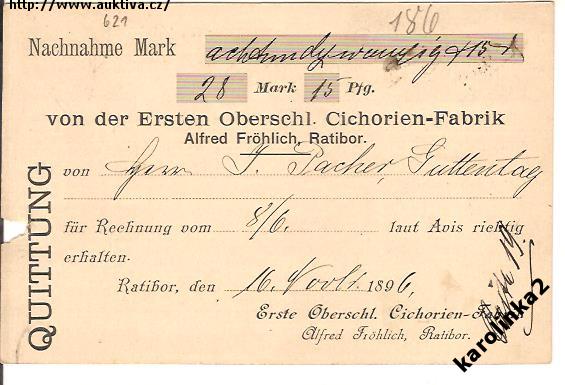 http://www.auktiva.cz/
621
186
Nachnahme Mark achtundzwanzig 15
28 Mark 15 Pfg.
von der Ersten Oberschl. Cichorien-Fabrik
Alfred Fröhlich, Ratibor.
QUITTUNG
von Herrn J. Pacher, Guttentag
für Rechnung vom 8/6. laut Avis richtig
erhalten.
Ratibor, den 16. Novbr. 1896,
Erste Oberschl. Cichorien-
Alfred Fröhlich, Ratibor.
karolinka2